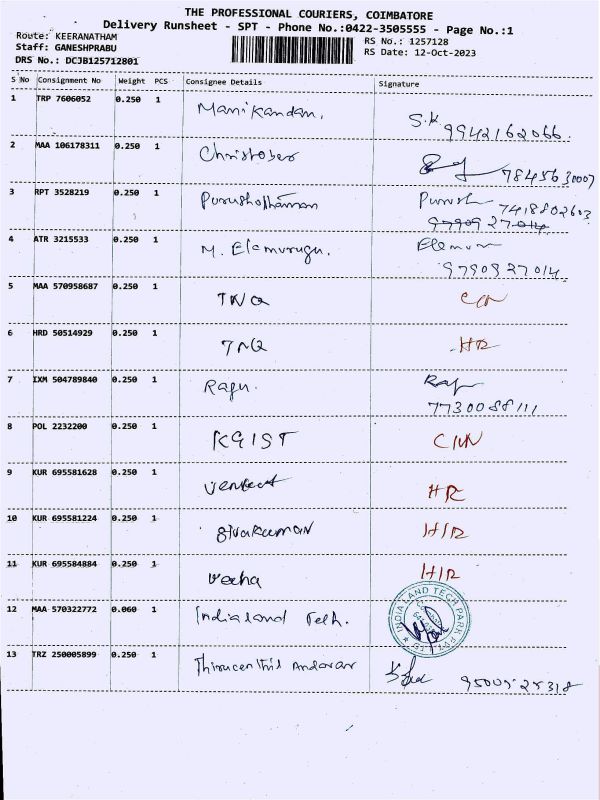 THE PROFESSIONAL COURIERS, COIMBATORE
Delivery Runsheet - SPT - Phone No.:0422-3505555 - Page No.:1
Route: KEERANATHAM
RS No.: 1257128
Staff: GANESHPRABU
RS Date: 12-Oct-2023
DRS No.: DCJB125712801
S No Consignment No Weight PCS Consignee Details Signature
1 TRP 7606052 0.250 1 Manikandan. S.K
9942162066.
2 MAA 106178311 0.250 1 Christober
7845630007
3 RPT 3528219 0.250 1 Purushothaman Purush 7418802603
9790927014
4 ATR 3215533 0.250 1 M. Elamurugu. Elamur
9790927014
5 MAA 570958687 0.250 1 TNQ CNN
6 HRD 50514929 0.250 1 TNQ HR
7 IXM 504789840 0.250 1 Ragu. Raj
7730088111
8 POL 2232200 0.250 1 KGIST CNN
9 KUR 695581628 0.250 1 Venkat HR
10 KUR 695581224 0.250 1 Sivakumar H/R
11 KUR 695584884 0.250 1 H/R
12 MAA 570322772 0.060 1 Indialand Teth.
INDIA LAND TECH PARK PVT LTD
13 TRZ 250005899 0.250 1 Thirucenthil Andavar